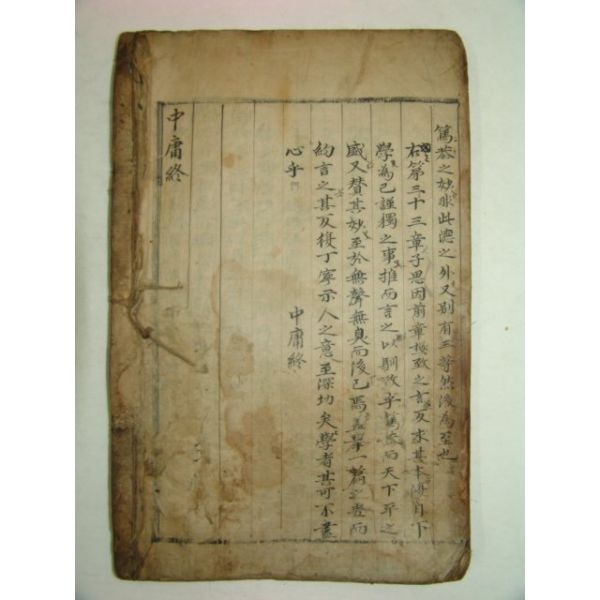 篤恭之妙非此德之外又別有三等然後為至也
右第三十三章子思因前章極致之言反求其本復自下
學為己謹獨之事推而言之以馴致乎篤恭而天下平之
盛又贊其妙至於無聲無臭而後已焉蓋舉一篇之要而
約言之其反復丁寧示人之意至深切矣學者其可不盡
心乎
中庸終
中庸終